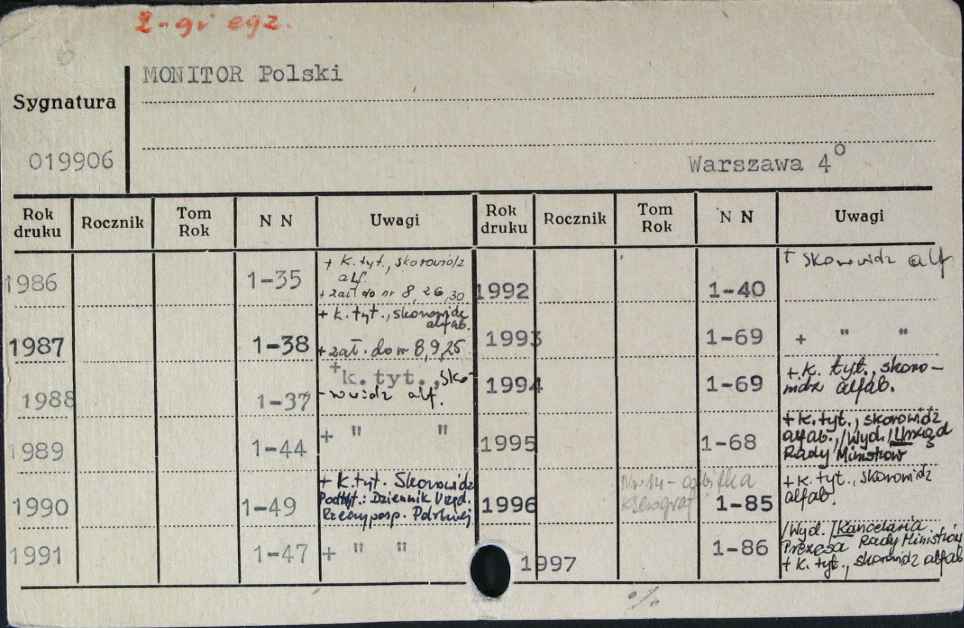 2-gi egz.
MONITOR Polski
Sygnatura
019906
Warszawa 4°
Rok druku Rocznik Tom Rok N N Uwagi Rok druku Rocznik Tom Rok N N Uwagi
1986 1-35 + k. tyt., skorowidz
alf.
+ zał do nr 8, 26, 30
1987 1-38 + k. tyt., skorowidz
alfab.
+ zał. do nr 8,9,25
1988 1-37 + k. tyt., sko-
-rowidz alf.
1989 1-44 + " "
1990 1-49 + k. tyt. Skorowidz
Podtyt.: Dziennik Urzęd.
Rzeczyposp. Polskiej
1991 1-47 + " "
1992 1-40 + skorowidz alf
1993 1-69 + " "
1994 1-69 + k. tyt., skoro-
widz alfab.
1995 1-68 + k. tyt., skorowidz
alfab., /Wyd./ Urząd
Rady Ministrów
1996 Nr 14 - odbitka
kserograf 1-85 + k. tyt., skorowidz
alfab.
1997 1-86 /Wyd./ Kancelaria
Prezesa Rady Ministrów
+ k. tyt., skorowidz alfab
%